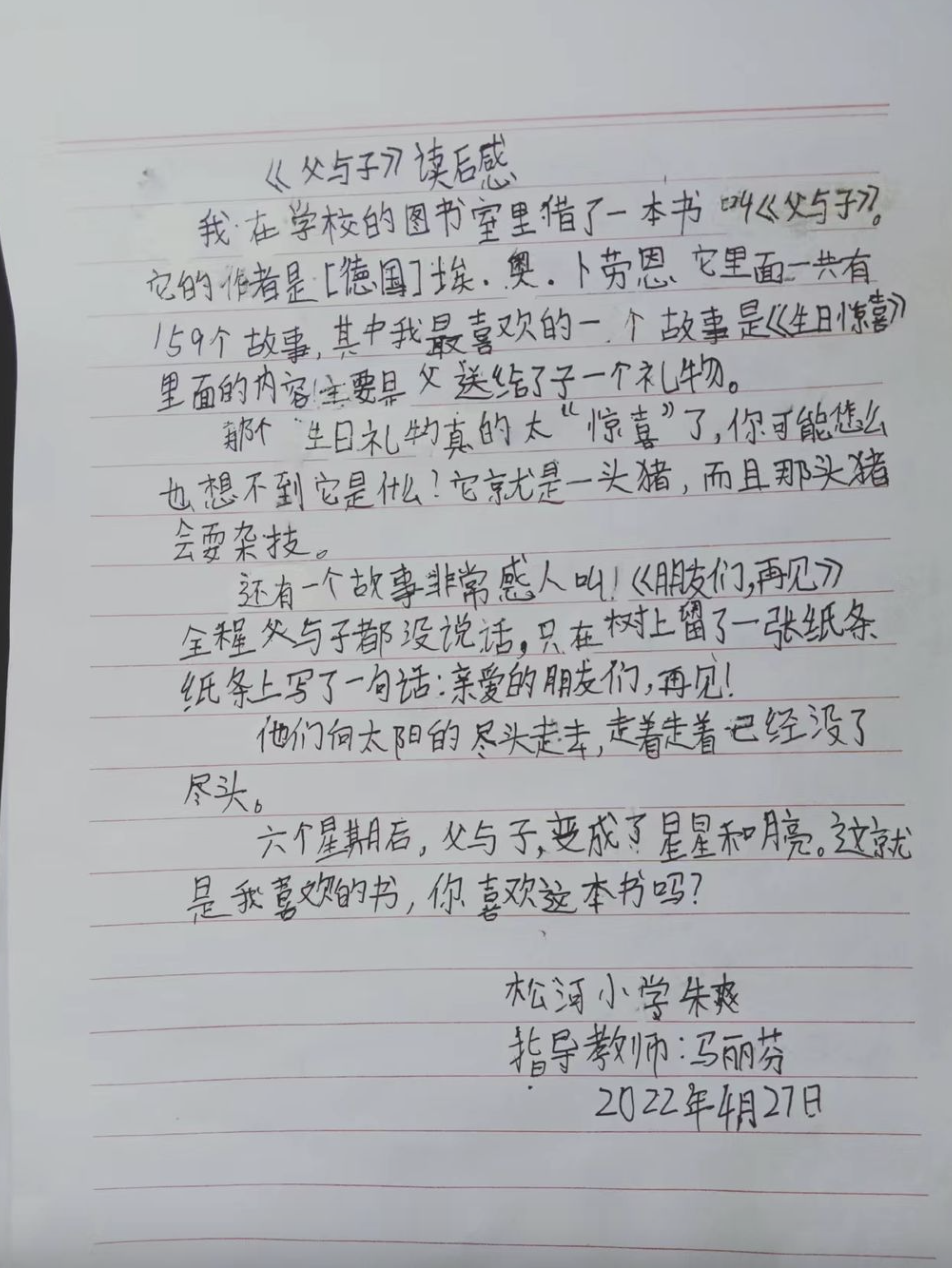 《父与子》读后感
我在学校的图书室里借了一本书叫《父与子》。
它的作者是[德国]埃.奥.卜劳恩 它里面一共有
159个故事,其中我最喜欢的一个故事是《生日惊喜》
里面的内容主要是父送给了子一个礼物。
那个生日礼物真的太“惊喜”了,你可能怎么
也想不到它是什么!它就是一头猪,而且那头猪
会耍杂技。
还有一个故事非常感人叫!《朋友们,再见》
全程父与子都没说话,只在树上留了一张纸条
纸条上写了一句话:亲爱的朋友们,再见!
他们向太阳的尽头走去,走着走着已经没了
尽头。
六个星期后,父与子,变成了星星和月亮。这就
是我喜欢的书,你喜欢这本书吗?
松河小学朱爽
指导教师:马丽芬
2022年4月27日